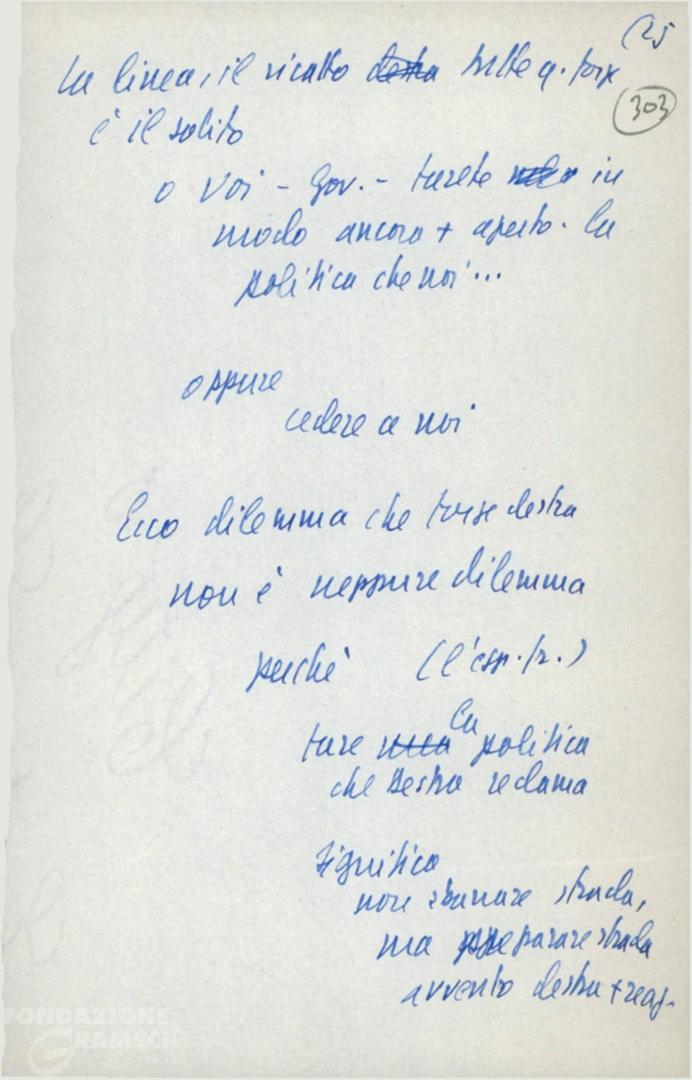 (25
303
La linea, il ricatto della q. forze
è il solito
o voi - Gov. - farete in
modo ancora + aperto. La
politica che noi...
oppure
cedere a noi
Ecco dilemma che forse destra
non è neppure dilemma
perché (l'esp. fr.)
fare una la politica
che destra reclama
significa
non sbarrare strada,
ma preparare strada
avvento destra + reaz.
FONDAZIONE
GRAMSCI